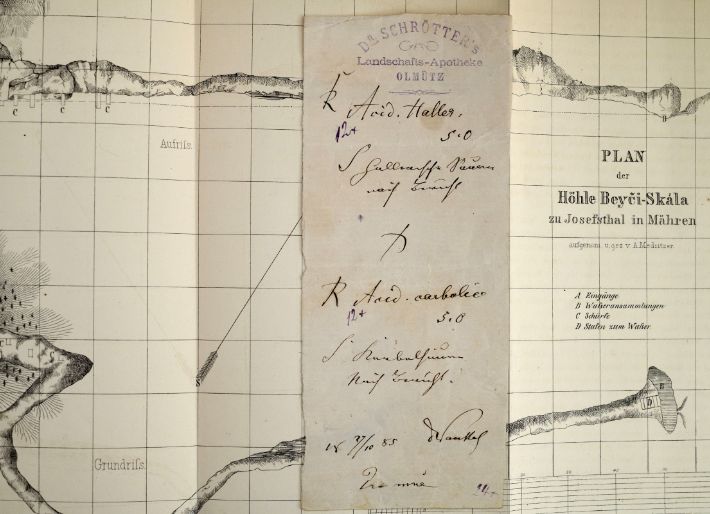 Dr. SCHRÖTTER's
Landschafts-Apotheke
OLMÜTZ
Acid. Haller.
12+
5.0
S
nach Bericht
Acid. carbolic
12+
5.0
S.
Nach Bericht.
18 27/10 85 Dr Wankel
24+
c c c
Aufriſs.
Grundriſs.
PLAN
der
Höhle Beyči-Skála
zu Josefsthal in Mähren
aufgenom. u. gez. v. A. Medritzer.
A Eingänge
B Waſseransammlungen
C Schürfe
D Stufen zum Waſser